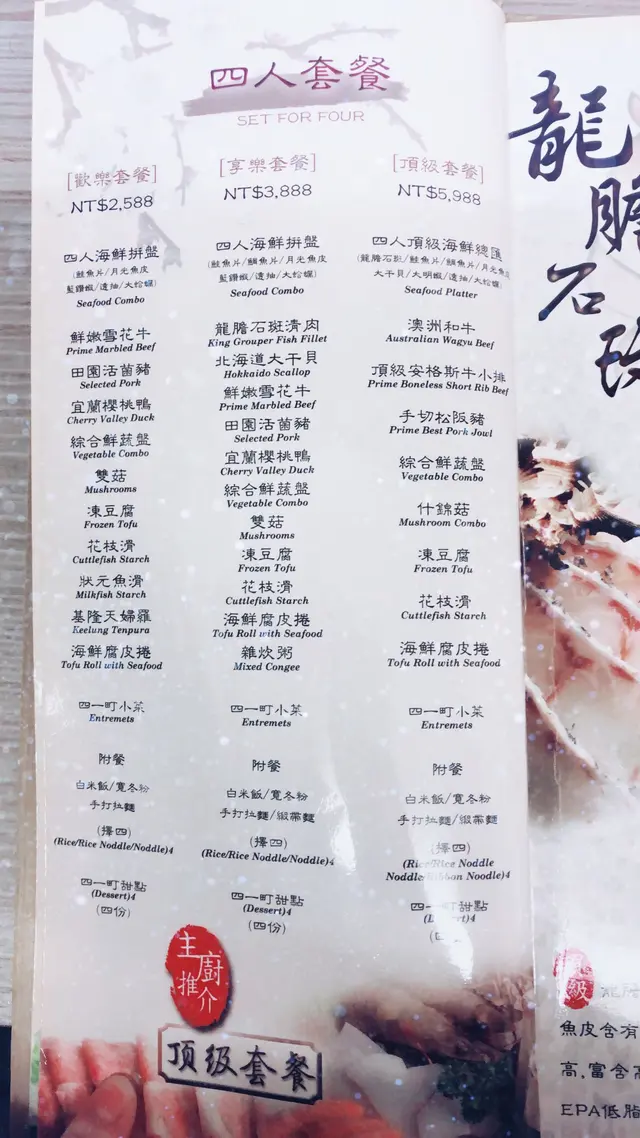 四人套餐
SET FOR FOUR
[歡樂套餐]
NT$2,588
四人海鮮拼盤
(鮭魚片/月光魚皮
藍鑽蝦/透抽/大蛤蠣)
Seafood Combo
鮮嫩雪花牛
Prime Marbled Beef
田園活菌豬
Selected Pork
宜蘭櫻桃鴨
Cherry Valley Duck
綜合鮮蔬盤
Vegetable Combo
雙菇
Mushrooms
凍豆腐
Frozen Tofu
花枝滑
Cuttlefish Starch
狀元魚滑
Milkfish Starch
基隆天婦羅
Keelung Tenpura
海鮮腐皮捲
Tofu Roll with Seafood
四一町小菜
Entremets
附餐
白米飯/寬冬粉
手打拉麵
(擇四)
(Rice/Rice Noddle/Noddle)4
四一町甜點
(Dessert)4
(四份)
[享樂套餐]
NT$3,888
四人海鮮拼盤
(鮭魚片/鯛魚片/月光魚皮
藍鑽蝦/透抽/大蛤蠣)
Seafood Combo
龍膽石斑清肉
King Grouper Fish Fillet
北海道大干貝
Hokkaido Scallop
鮮嫩雪花牛
Prime Marbled Beef
田園活菌豬
Selected Pork
宜蘭櫻桃鴨
Cherry Valley Duck
綜合鮮蔬盤
Vegetable Combo
雙菇
Mushrooms
凍豆腐
Frozen Tofu
花枝滑
Cuttlefish Starch
海鮮腐皮捲
Tofu Roll with Seafood
雜炊粥
Mixed Congee
四一町小菜
Entremets
附餐
白米飯/寬冬粉
手打拉麵/緞帶麵
(擇四)
(Rice/Rice Noddle/Noddle)4
四一町甜點
(Dessert)4
(四份)
[頂級套餐]
NT$5,988
四人頂級海鮮總匯
(龍膽石斑/鮭魚片/鯛魚片/月光魚皮
大干貝/大明蝦/透抽/大蛤蠣)
Seafood Platter
澳洲和牛
Australian Wagyu Beef
頂級安格斯牛小排
Prime Boneless Short Rib Beef
手切松阪豬
Prime Best Pork Jowl
綜合鮮蔬盤
Vegetable Combo
什錦菇
Mushroom Combo
凍豆腐
Frozen Tofu
花枝滑
Cuttlefish Starch
海鮮腐皮捲
Tofu Roll with Seafood
四一町小菜
Entremets
附餐
白米飯/寬冬粉
手打拉麵/緞帶麵
(擇四)
(Rice/Rice Noddle
Noddle/Ribbon Noodle)4
四一町甜點
(Dessert)4
主廚
推介
頂級套餐
龍
膽
石
頂級
魚皮含有
高,富含
EPA低脂